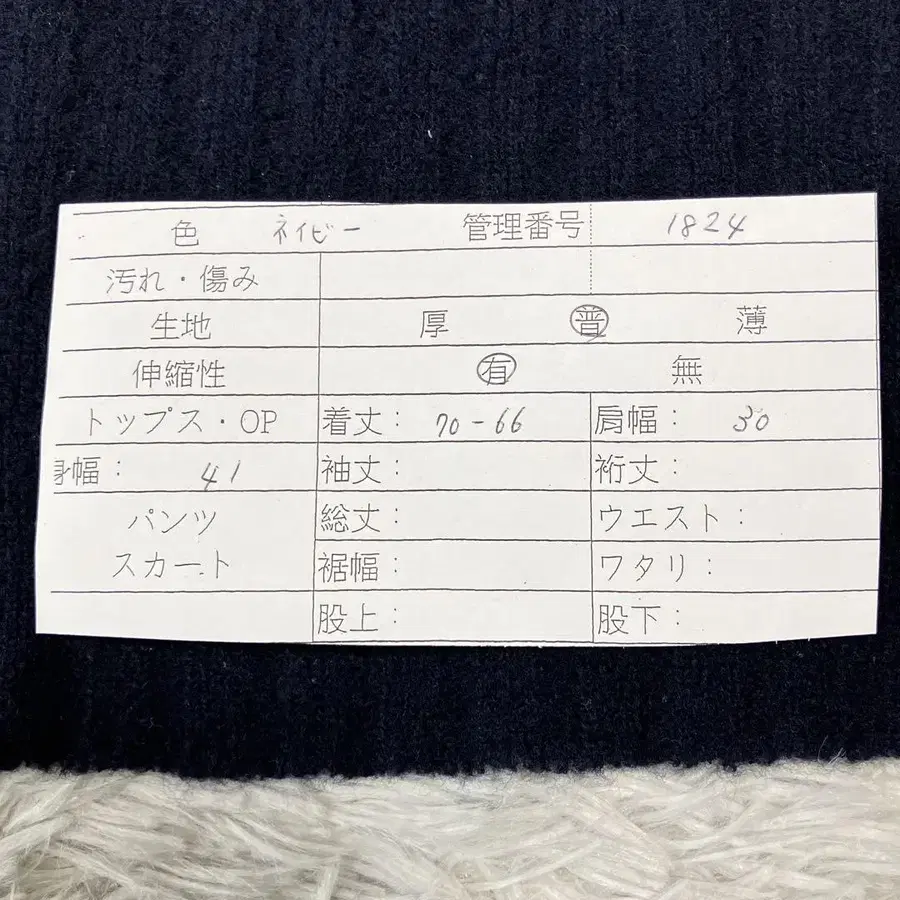 色 ネイビー 管理番号 1824
汚れ・傷み
生地 厚 普 薄
伸縮性 有 無
トップス・OP 着丈: 70-66 肩幅: 30
身幅: 41 袖丈: 裄丈:
パンツ 総丈: ウエスト:
スカート 裾幅: ワタリ:
股上: 股下: